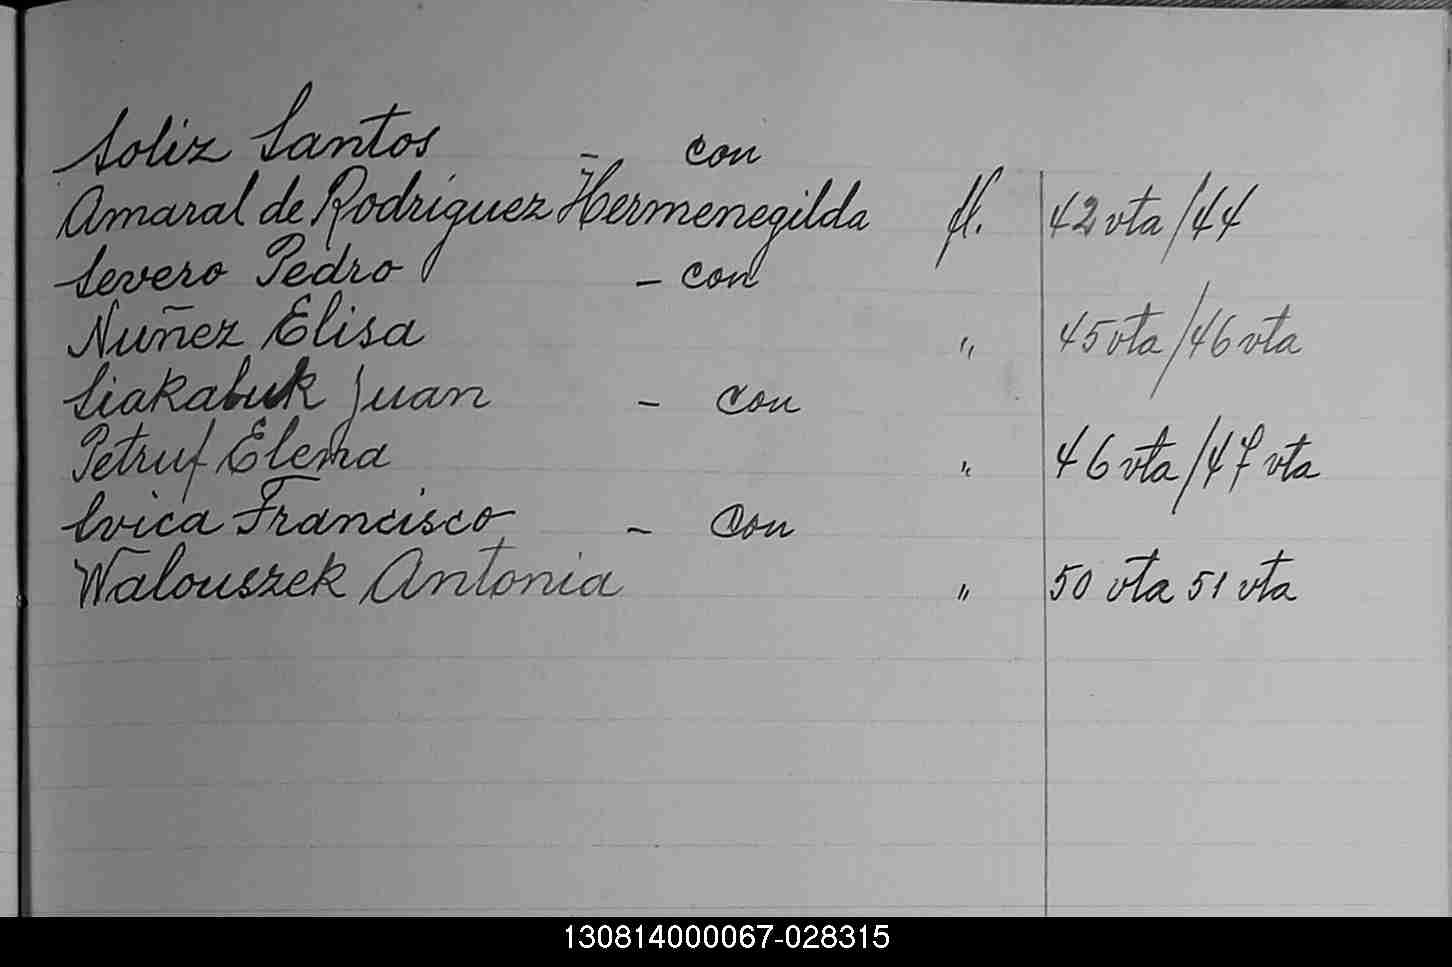 Soliz Santos - con
Amaral de Rodriguez Hermenegilda fl. 42 vta/44
Severo Pedro - con
Nuñez Elisa " 45 vta/46 vta
Siakabuk Juan - con
Petruf Elena " 46 vta/47 vta
Svica Francisco - con
Walouszek Antonia " 50 vta 51 vta
130814000067-028315